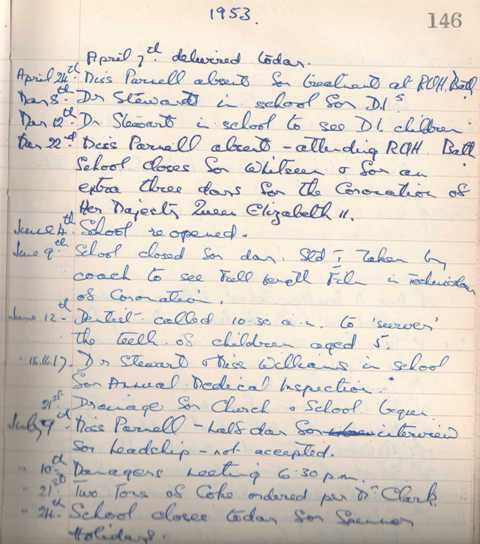 1953.
146
April 7th delivered today.
April 24th Miss Parnell absent for treatment at R.U.H. Bath.
May 8th Dr Stewart in school for D.I.s
May 12th Dr Stewart in school to see D.I. children
May 22nd Miss Parnell absent - attending RUH Bath
School closes for Whitsun & for an
extra three days for the Coronation of
Her Majesty Queen Elizabeth II.
June 4th School re opened.
June 9th School closed for day. Std I taken by
coach to see Full length Film in Technicolor
of Coronation.
June 12th Dentist called 10-30 a.m. to 'survey'
the teeth of children aged 5.
" 16.17. Dr Stewart & Miss Williams in school
for Annual Medical Inspection.
" 21st Drainage for Church & School begun.
July 9th Miss Parnell - half day for interview
for headship - not accepted.
" 10th Managers meeting 6.30 p.m.
" 21st Two Tons of Coke ordered per Mr Clark.
" 24th School closes today for Summer
Holidays.